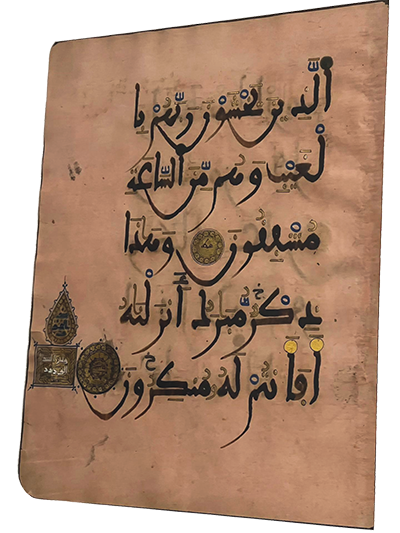 الَّذين يخشون ربَّهم با
لْغيب وهم مّن السَّاعة
مشفقون وهذا
ذكْر مّبرك أنزلْنه
أفأنتمْ له منكرون